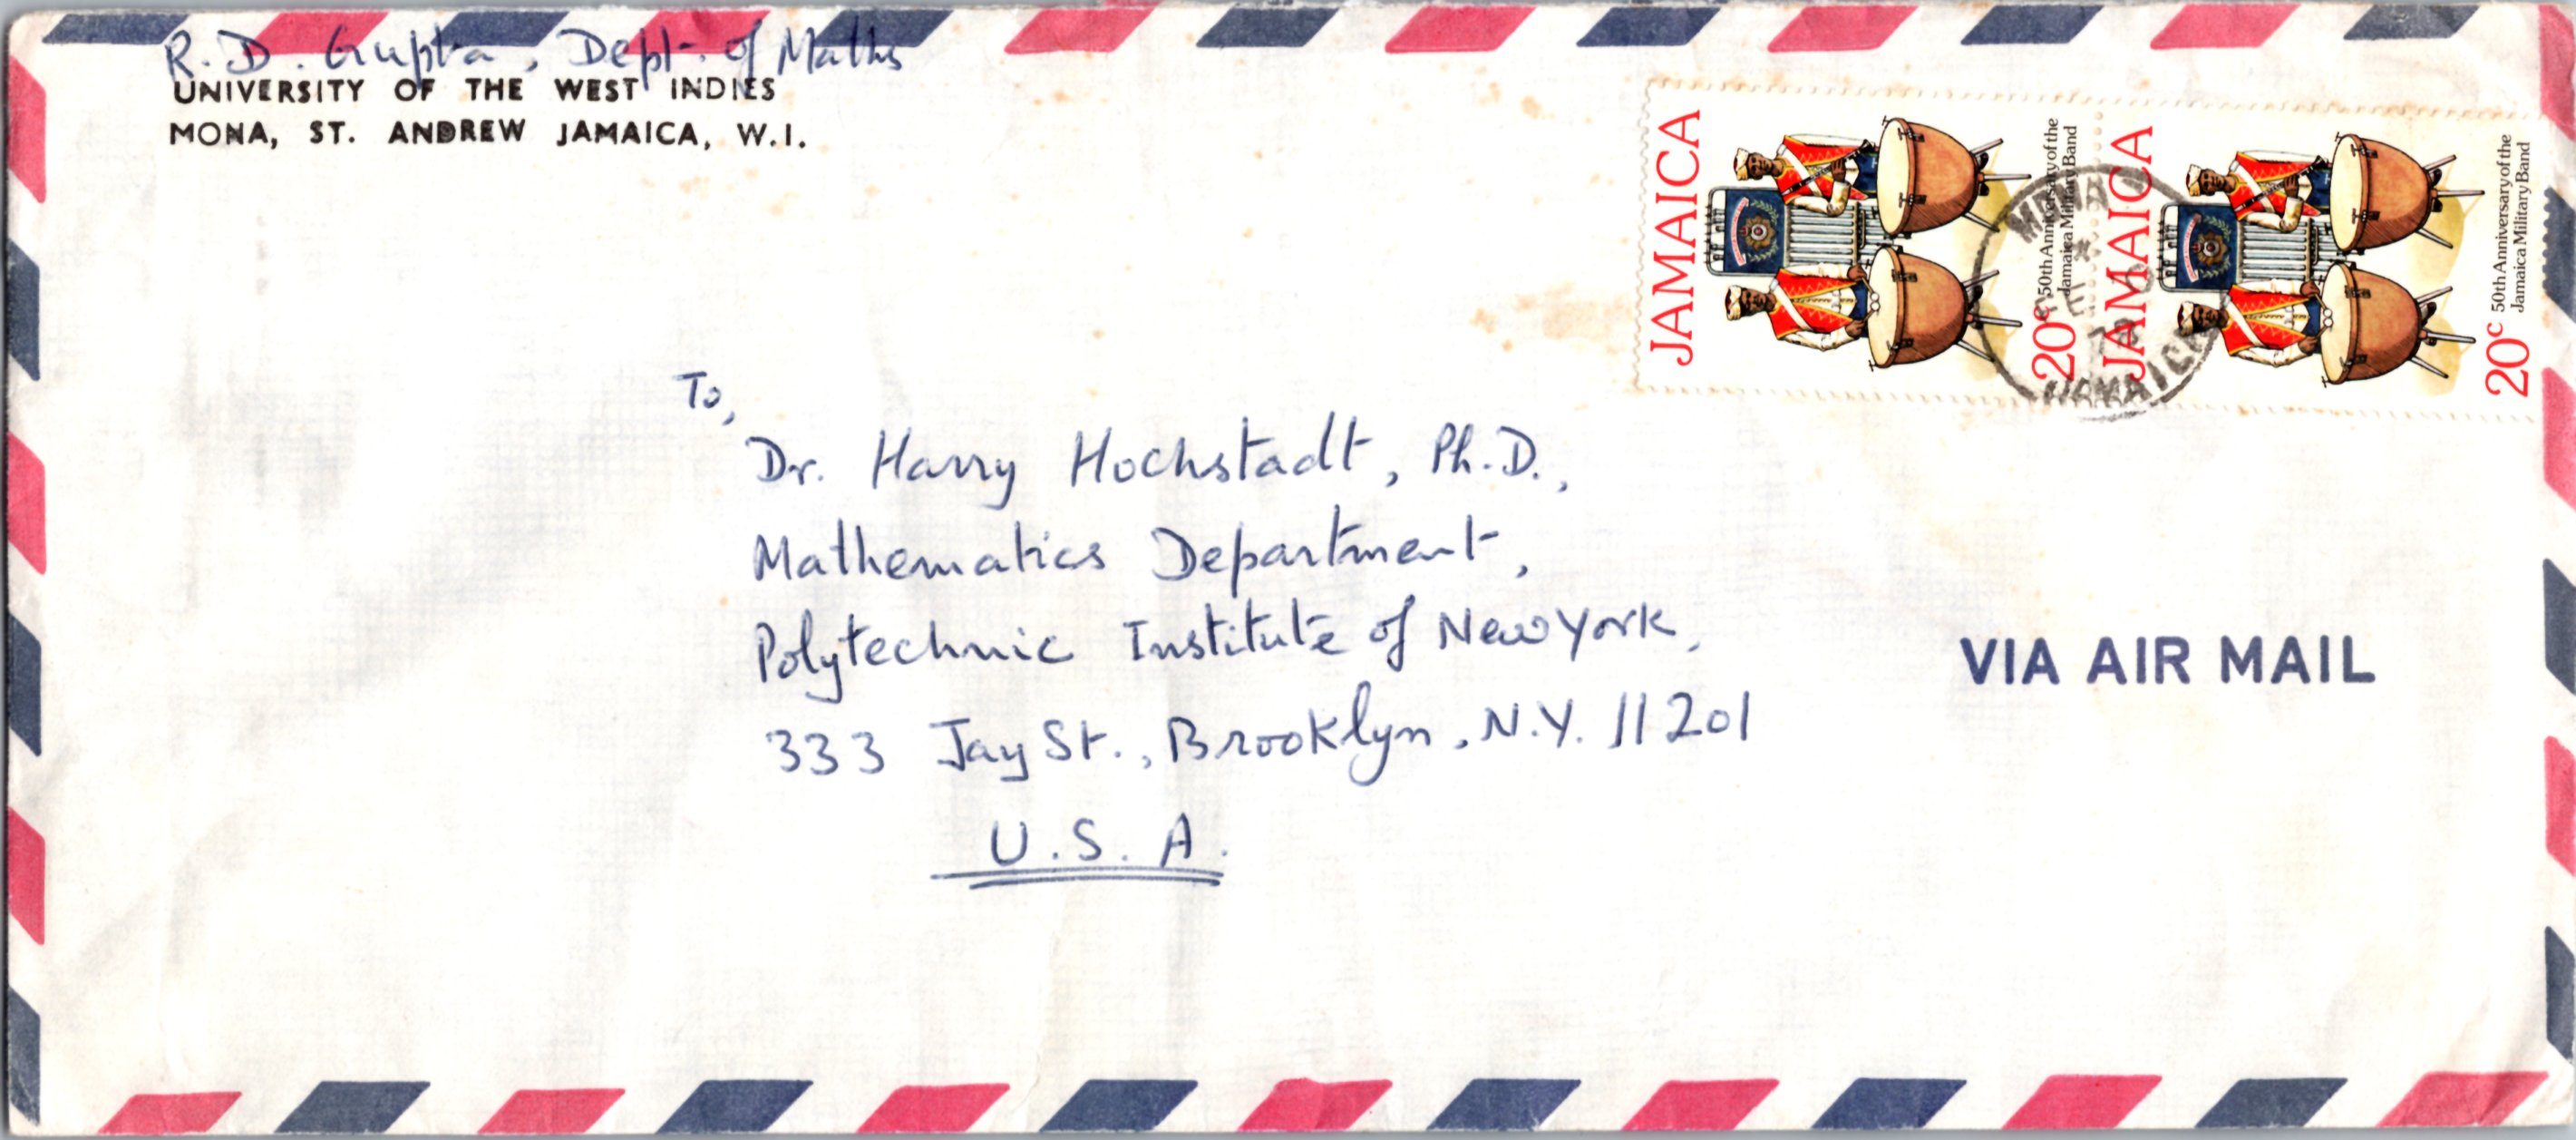 R. D. Gupta, Dept. of Maths
UNIVERSITY OF THE WEST INDIES
MONA, ST. ANDREW JAMAICA, W.I.
JAMAICA
50th Anniversary of the
Jamaica Military Band
20c
JAMAICA
50th Anniversary of the
Jamaica Military Band
20c
MONA
JAMAICA
To,
Dr. Harry Hochstadt, Ph.D.,
Mathematics Department,
Polytechnic Institute of New York,
333 Jay St., Brooklyn, N.Y. 11201
U.S.A.
VIA AIR MAIL